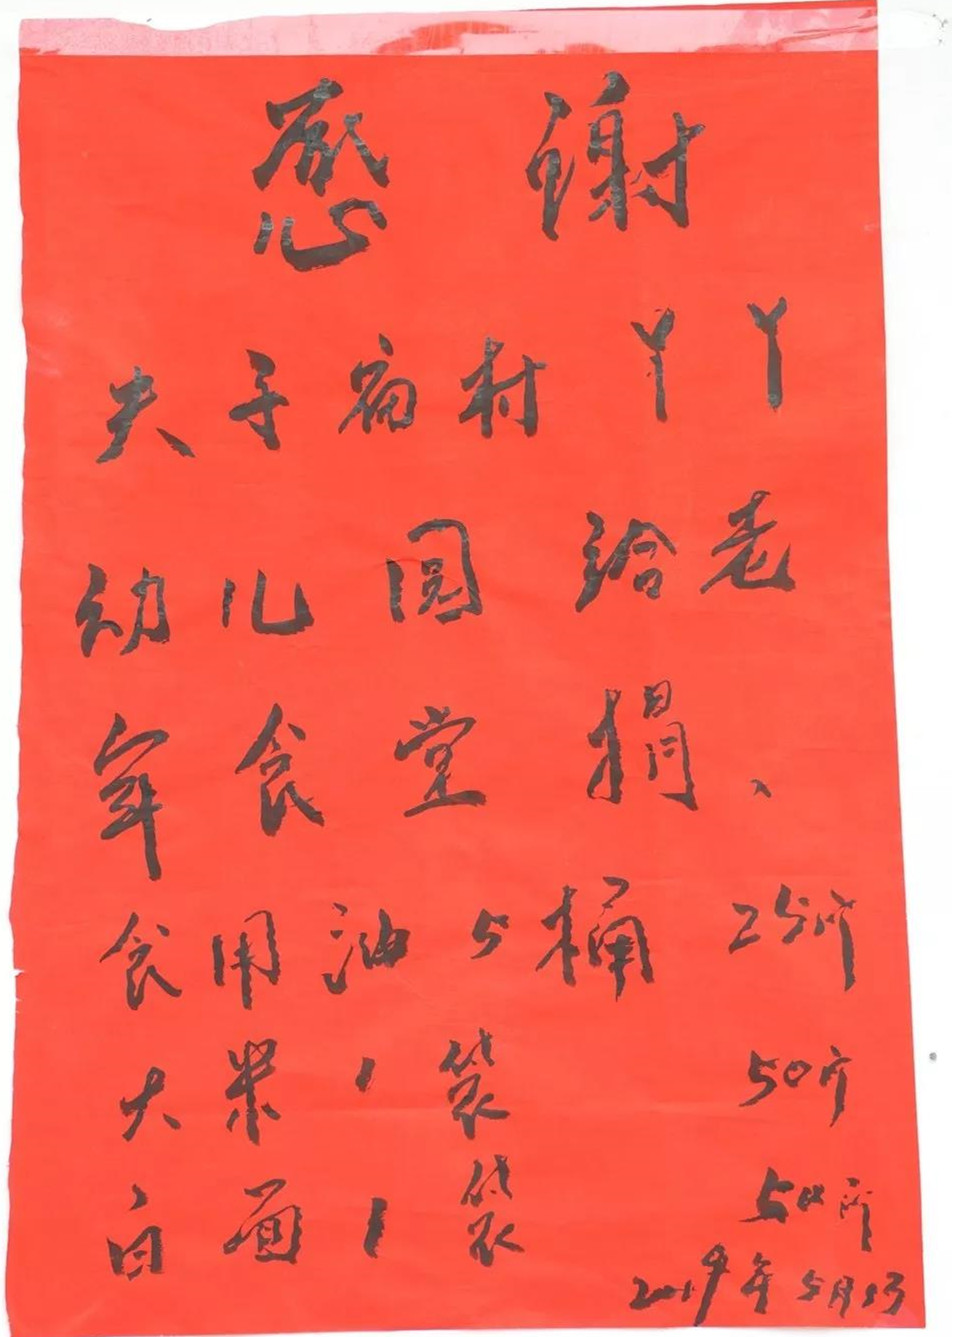 感谢
夫子宿村丫丫
幼儿园给老
年食堂捐、
食用油5桶 25斤
大米1袋 50斤
白面1袋 50斤
2019年5月